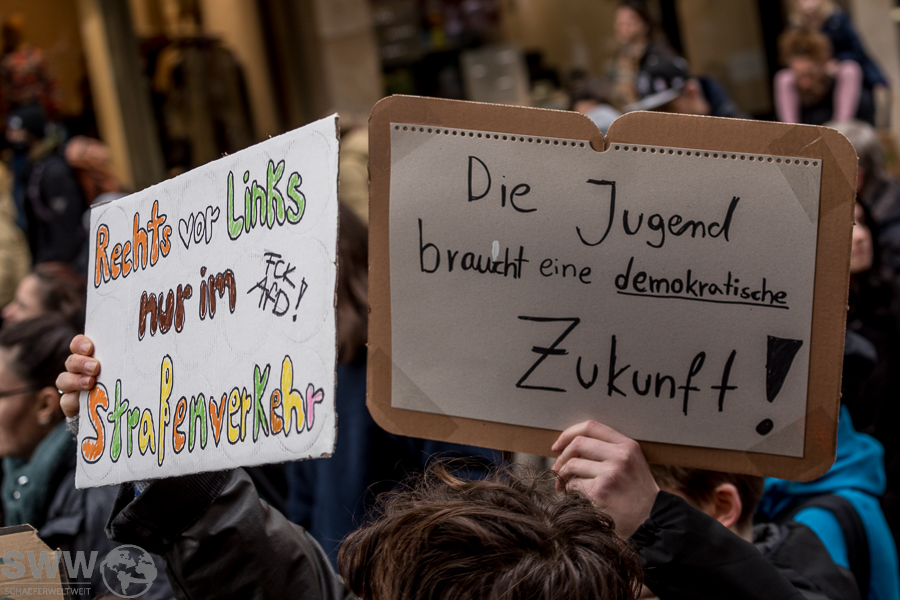 Rechts vor Links
nur im
FCK
AfD!
Straßenverkehr
Die Jugend
braucht eine demokratische
Zukunft!
SWW
SCHAEFERWELTWEIT